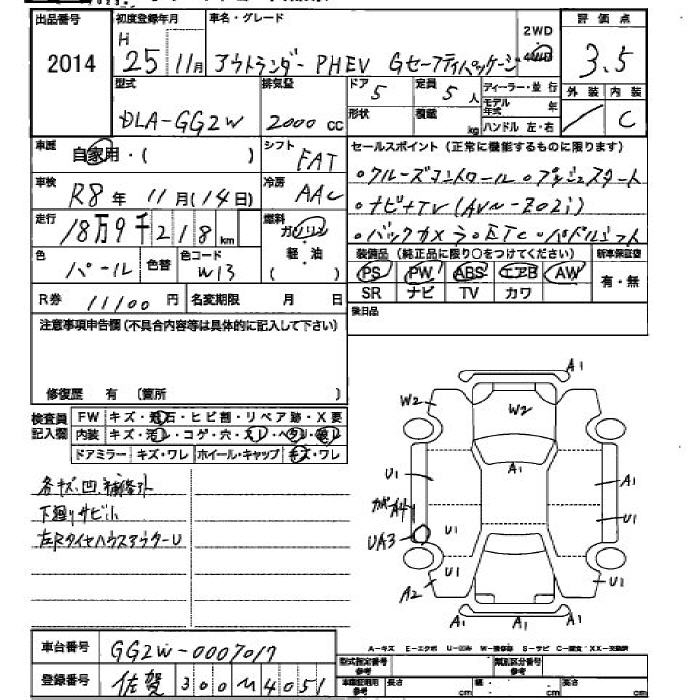 出品番号 初度登録年月 車名・グレード 2WD 4WD 評価点
2014 H 25 11月 アウトランダーPHEV Gセーフティパッケージ 3.5
型式 排気量 ドア 5 定員 5人 ディーラー・並行 外装 内装
DLA-GG2W 2000 cc 形状 積載 kg モデル年式 年 ハンドル 左・右 / C
車歴 自家用・( ) シフト FAT セールスポイント(正常に機能するものに限ります)
車検 R8年 11月(14日) 冷房 AAC ○クルーズコントロール ○プッシュスタート
○ナビ+TV(AVN-Z02i)
走行 18万9千218km 燃料 ガソリン 軽・油 ○バックカメラ○ETC○パドルシフト
色 パール 色替 色コード W13 装備品(純正品に限り○をつけてください) 新車保証書
PS PW ABS エアB AW 有・無
R券 11100円 名変期限 月 日 SR ナビ TV カワ
注意事項申告欄(不具合内容等は具体的に記入して下さい) 後日品
修復歴 有 (箇所 )
検査員記入欄 FW キズ・飛石・ヒビ割・リペア跡・X要
内装 キズ・汚レ・コゲ・穴・スレ・ヘタリ・破レ
ドアミラー キズ・ワレ ホイール・キャップ キズ・ワレ
各キズ、凹、補修跡
下廻りサビ小
左RタイヤハウスアウターU
A1
W2 W2
U1 A1 A1
カバーA4 U1 U1
UA3
U1
A2 A1
A1
A-キズ E-エクボ U-凹み W-補修跡 S-サビ C-腐食 XX-交換済
車台番号 GG2W-0007017
登録番号 佐賀 300 M 4051
型式指定番号 参考 類別区分番号 参考
車庫証明用 参考 長さ cm 幅 cm 高さ cm